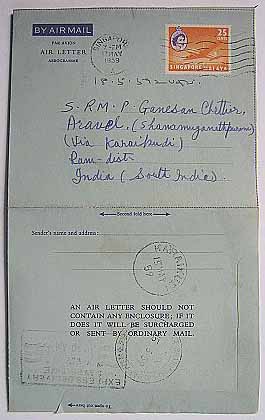 BY AIR MAIL
PAR AVION
AIR LETTER
AEROGRAMME
SINGAPORE
MAY
1959
25
CENTS
SINGAPORE MALAYA
18.5.59
S.R.M.P. Ganesan Chettiar,
Aravel, (Shanamuganathapuram)
(Via Karaikudi)
Ram-dist
India (South India).
Second fold here
Sender's name and address:
15 MAY
59
AN AIR LETTER SHOULD NOT
CONTAIN ANY ENCLOSURE; IF IT
DOES IT WILL BE SURCHARGED
OR SENT BY ORDINARY MAIL.
EXPRESS DELIVERY
To open cut here